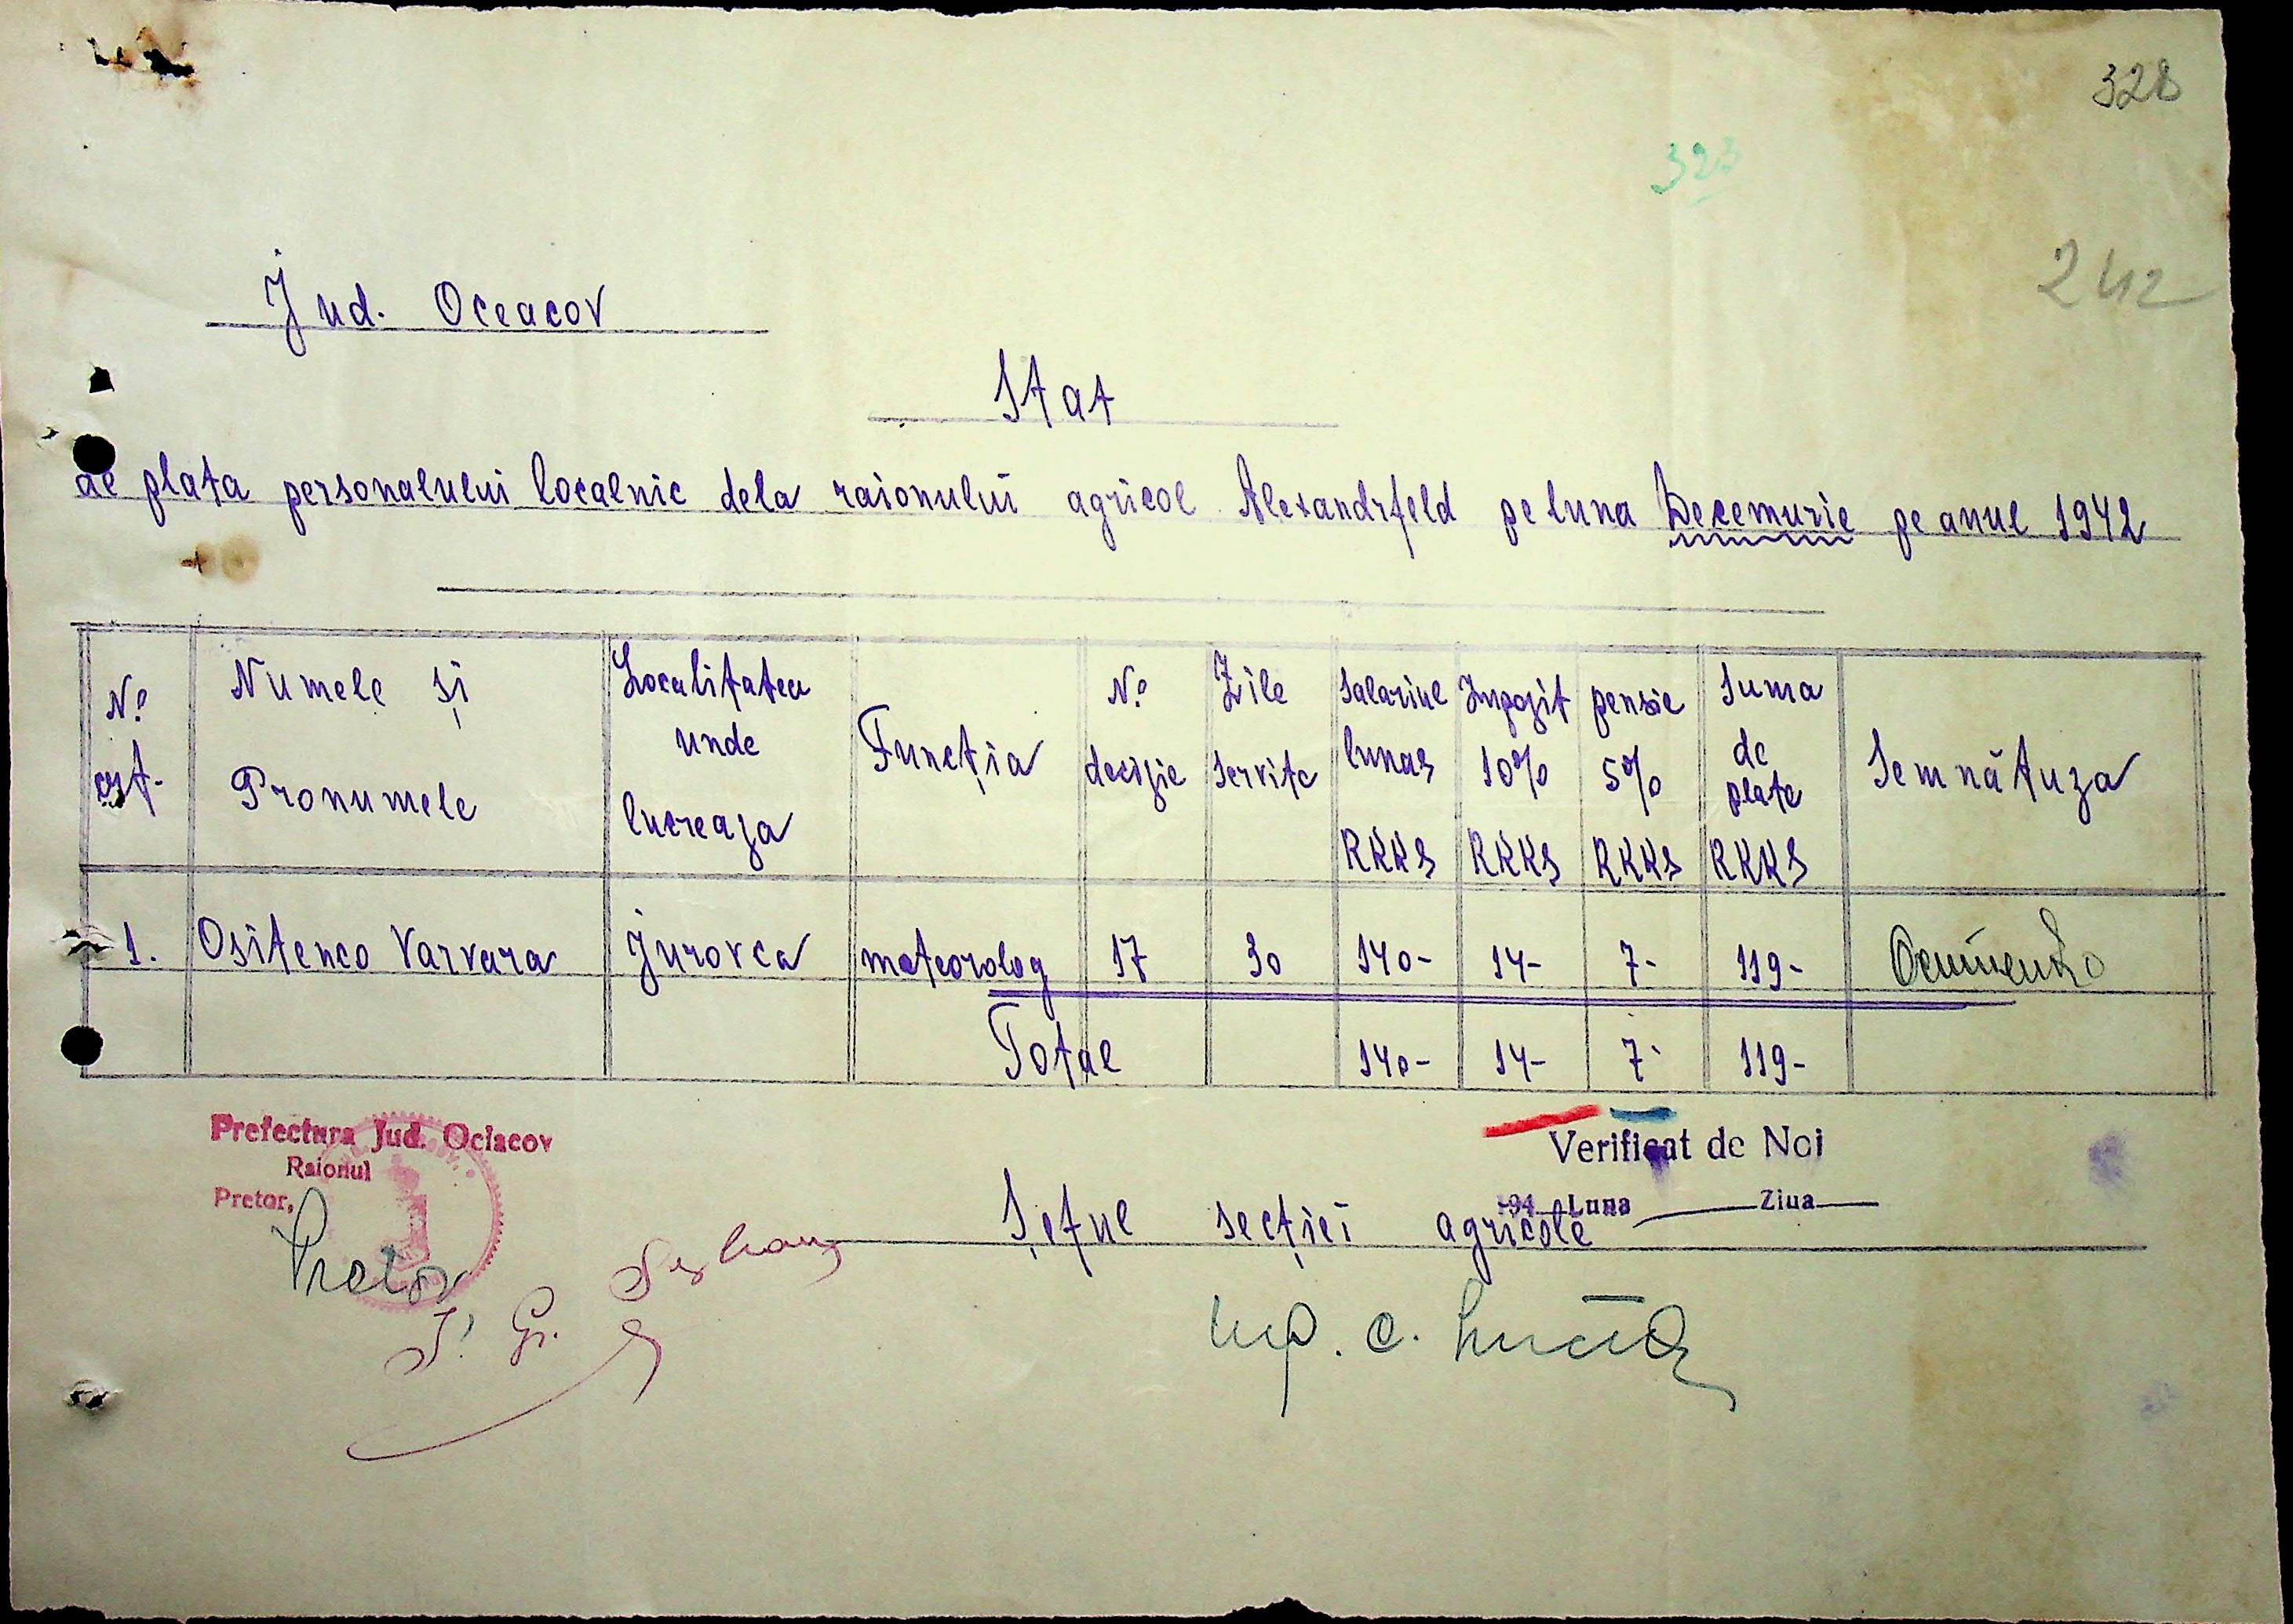 328
323
242
Jud. Oceacov
Stat
de plata personalului localnic dela raionului agricol Alexandrfeld pe luna Decemvrie pe anul 1942
No crt.
Numele și Pronumele
Localitatea unde lucreaza
Funcția
No decizie
Zile servite
Salariul lunar RKKS
Impozit 10% RKKS
pensie 5% RKKS
Suma de plata RKKS
Semnătura
1. Ositenco Varvara Jurovca meteorolog 17 30 140- 14- 7- 119- Осипенко
Total 140- 14- 7- 119-
Prefectura Jud. Ociacov
Raionul
Pretor,
Pretor
Verificat de Noi
194 Luna Ziua
Șeful secției agricole
Ing. C.